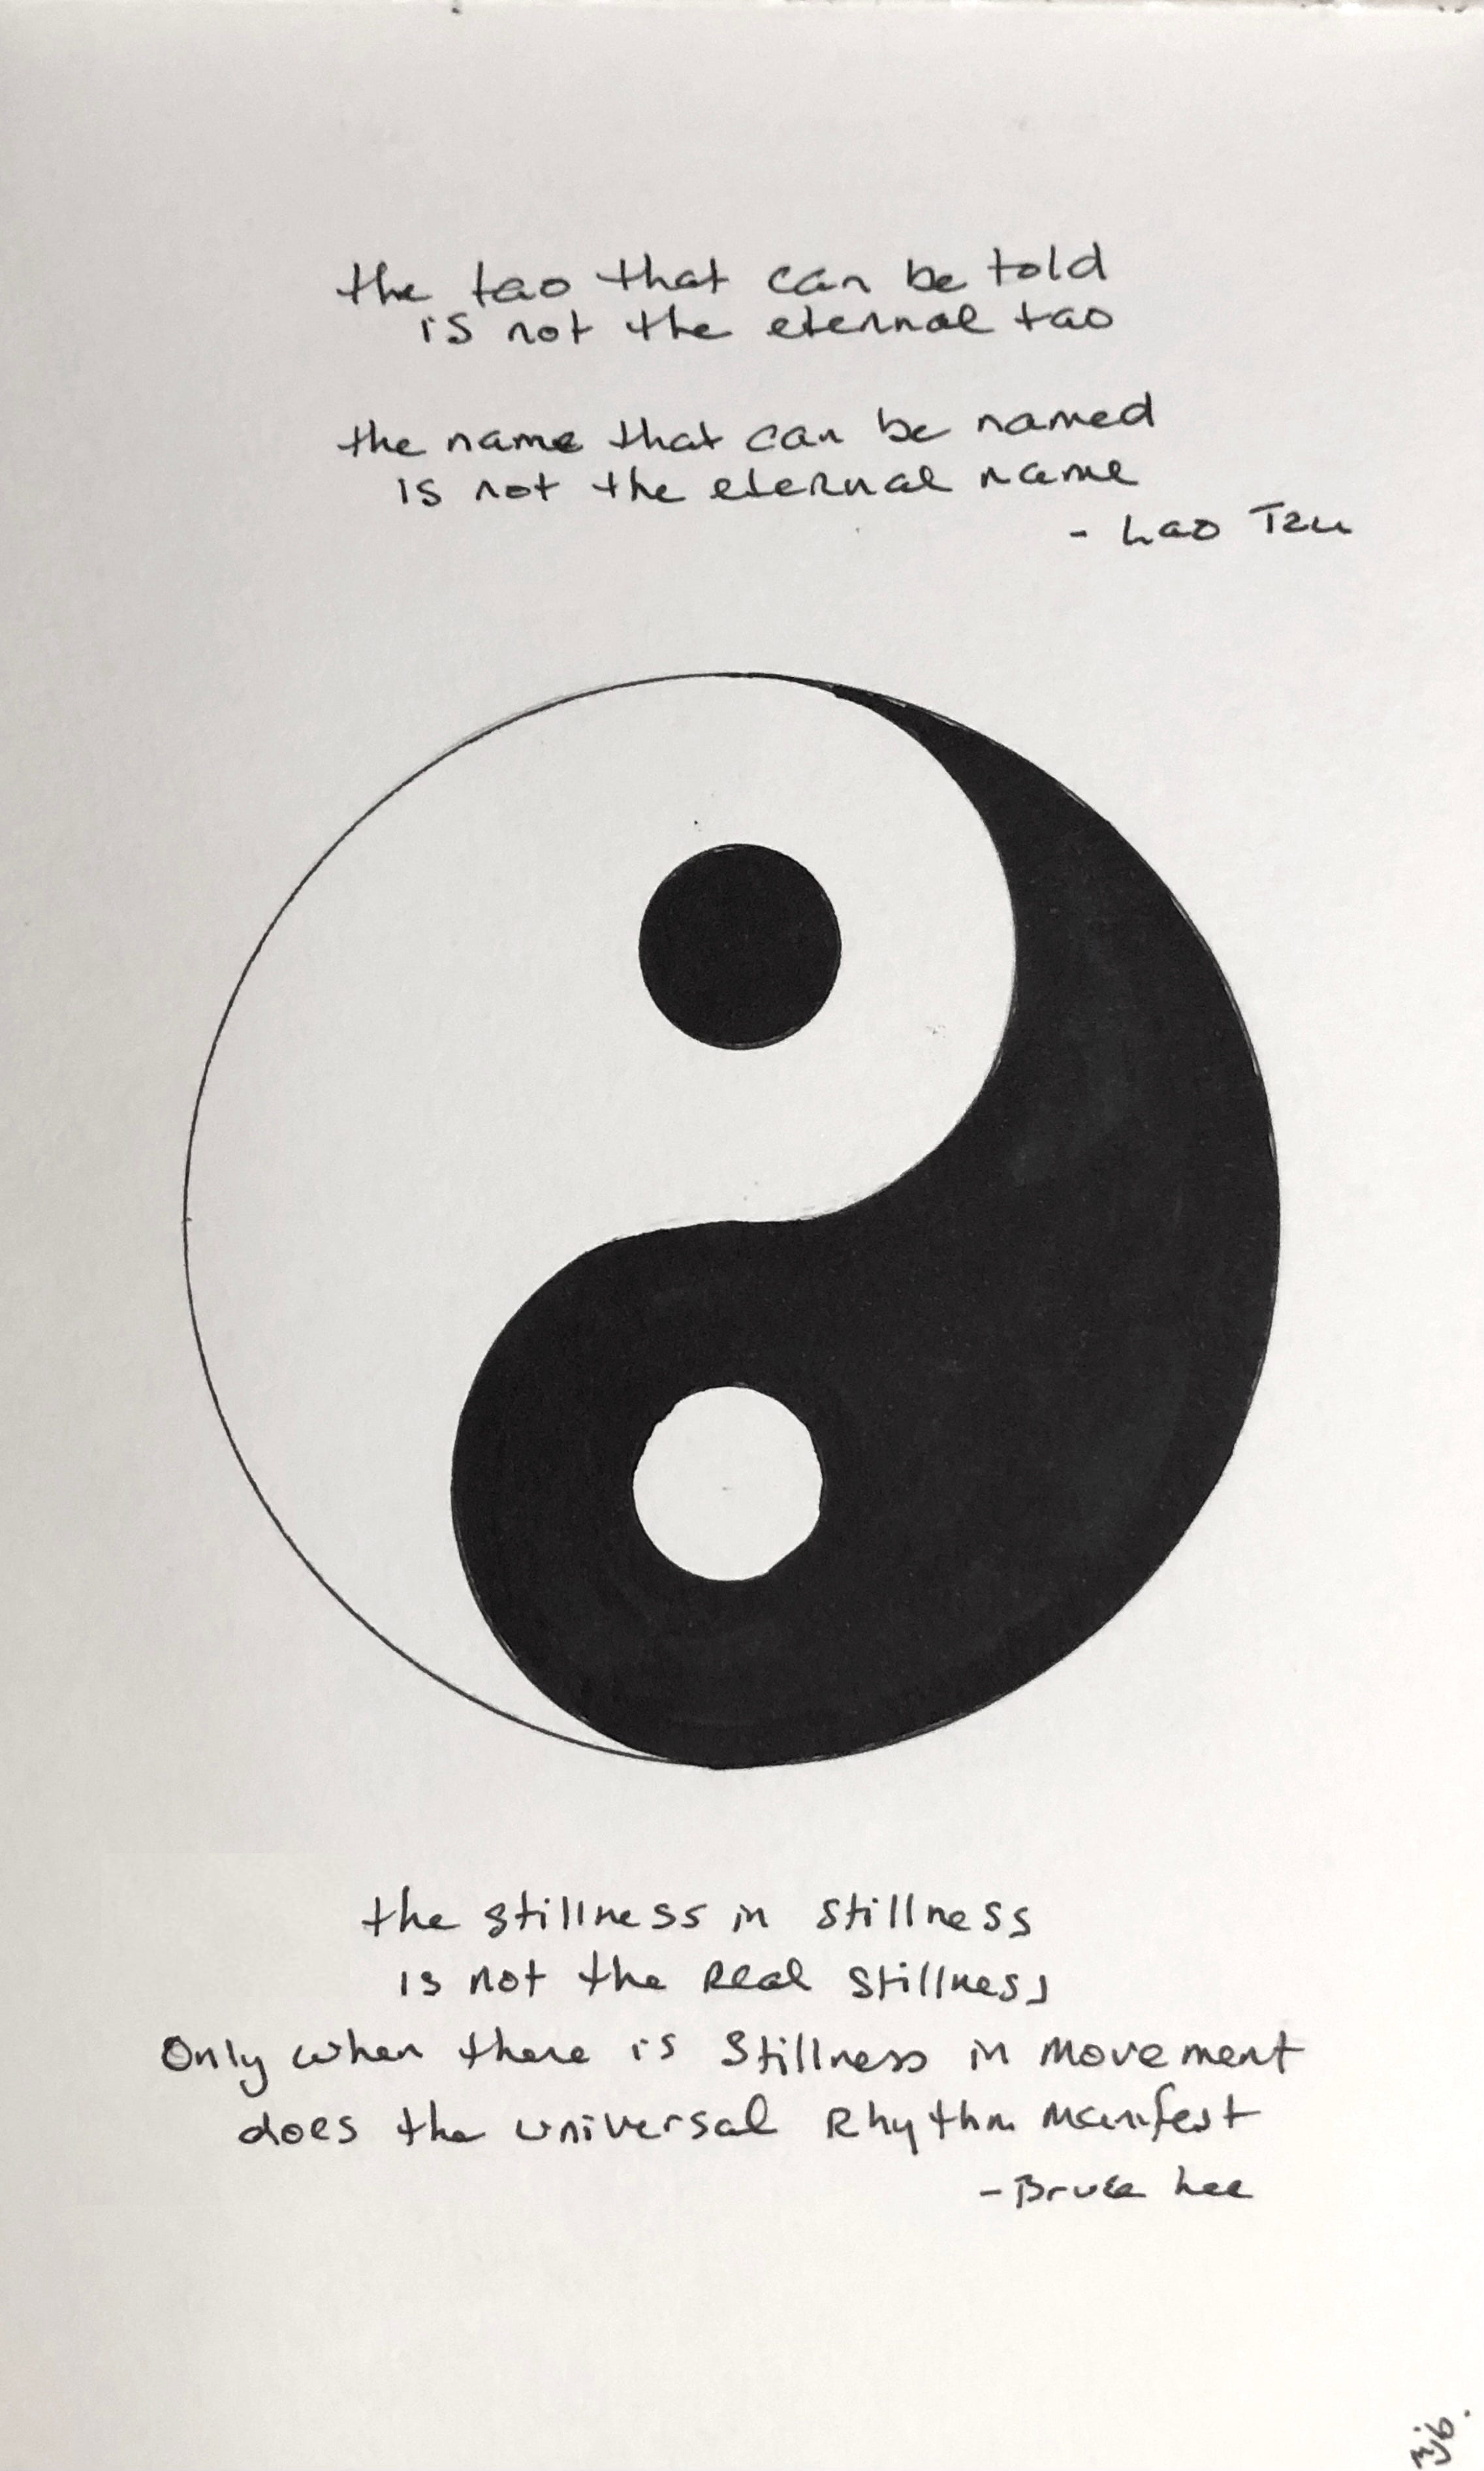 the tao that can be told
is not the eternal tao
the name that can be named
is not the eternal name
- Lao Tzu
the stillness in stillness
is not the Real stillness
Only when there is Stillness in Movement
does the universal Rhythm Manifest
- Bruce Lee